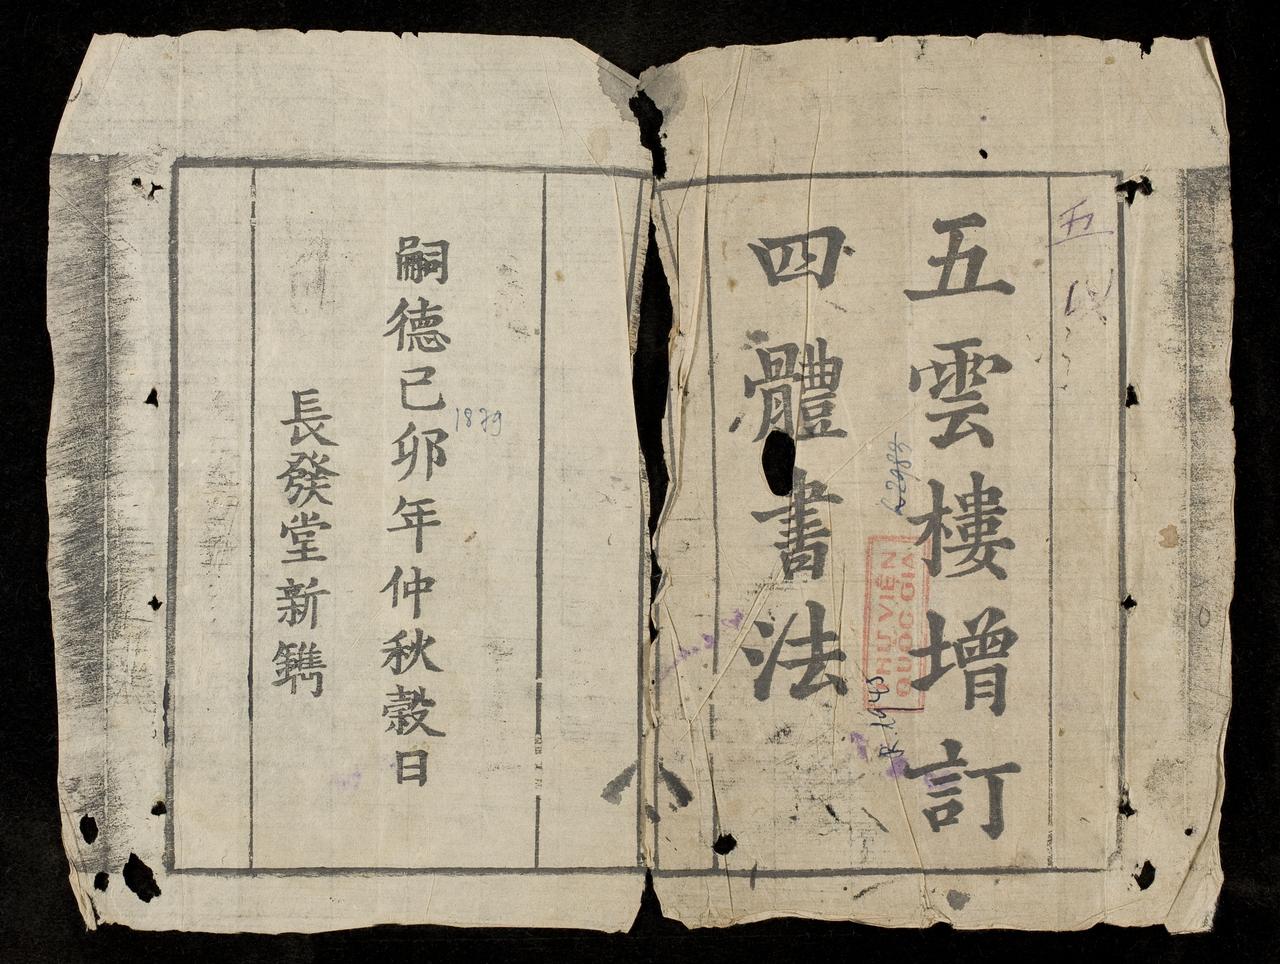 五雲樓增訂
四體書法
嗣德己卯年仲秋穀日
長發堂新鐫
1879
THƯ VIỆN
QUỐC GIA
R.1945
五